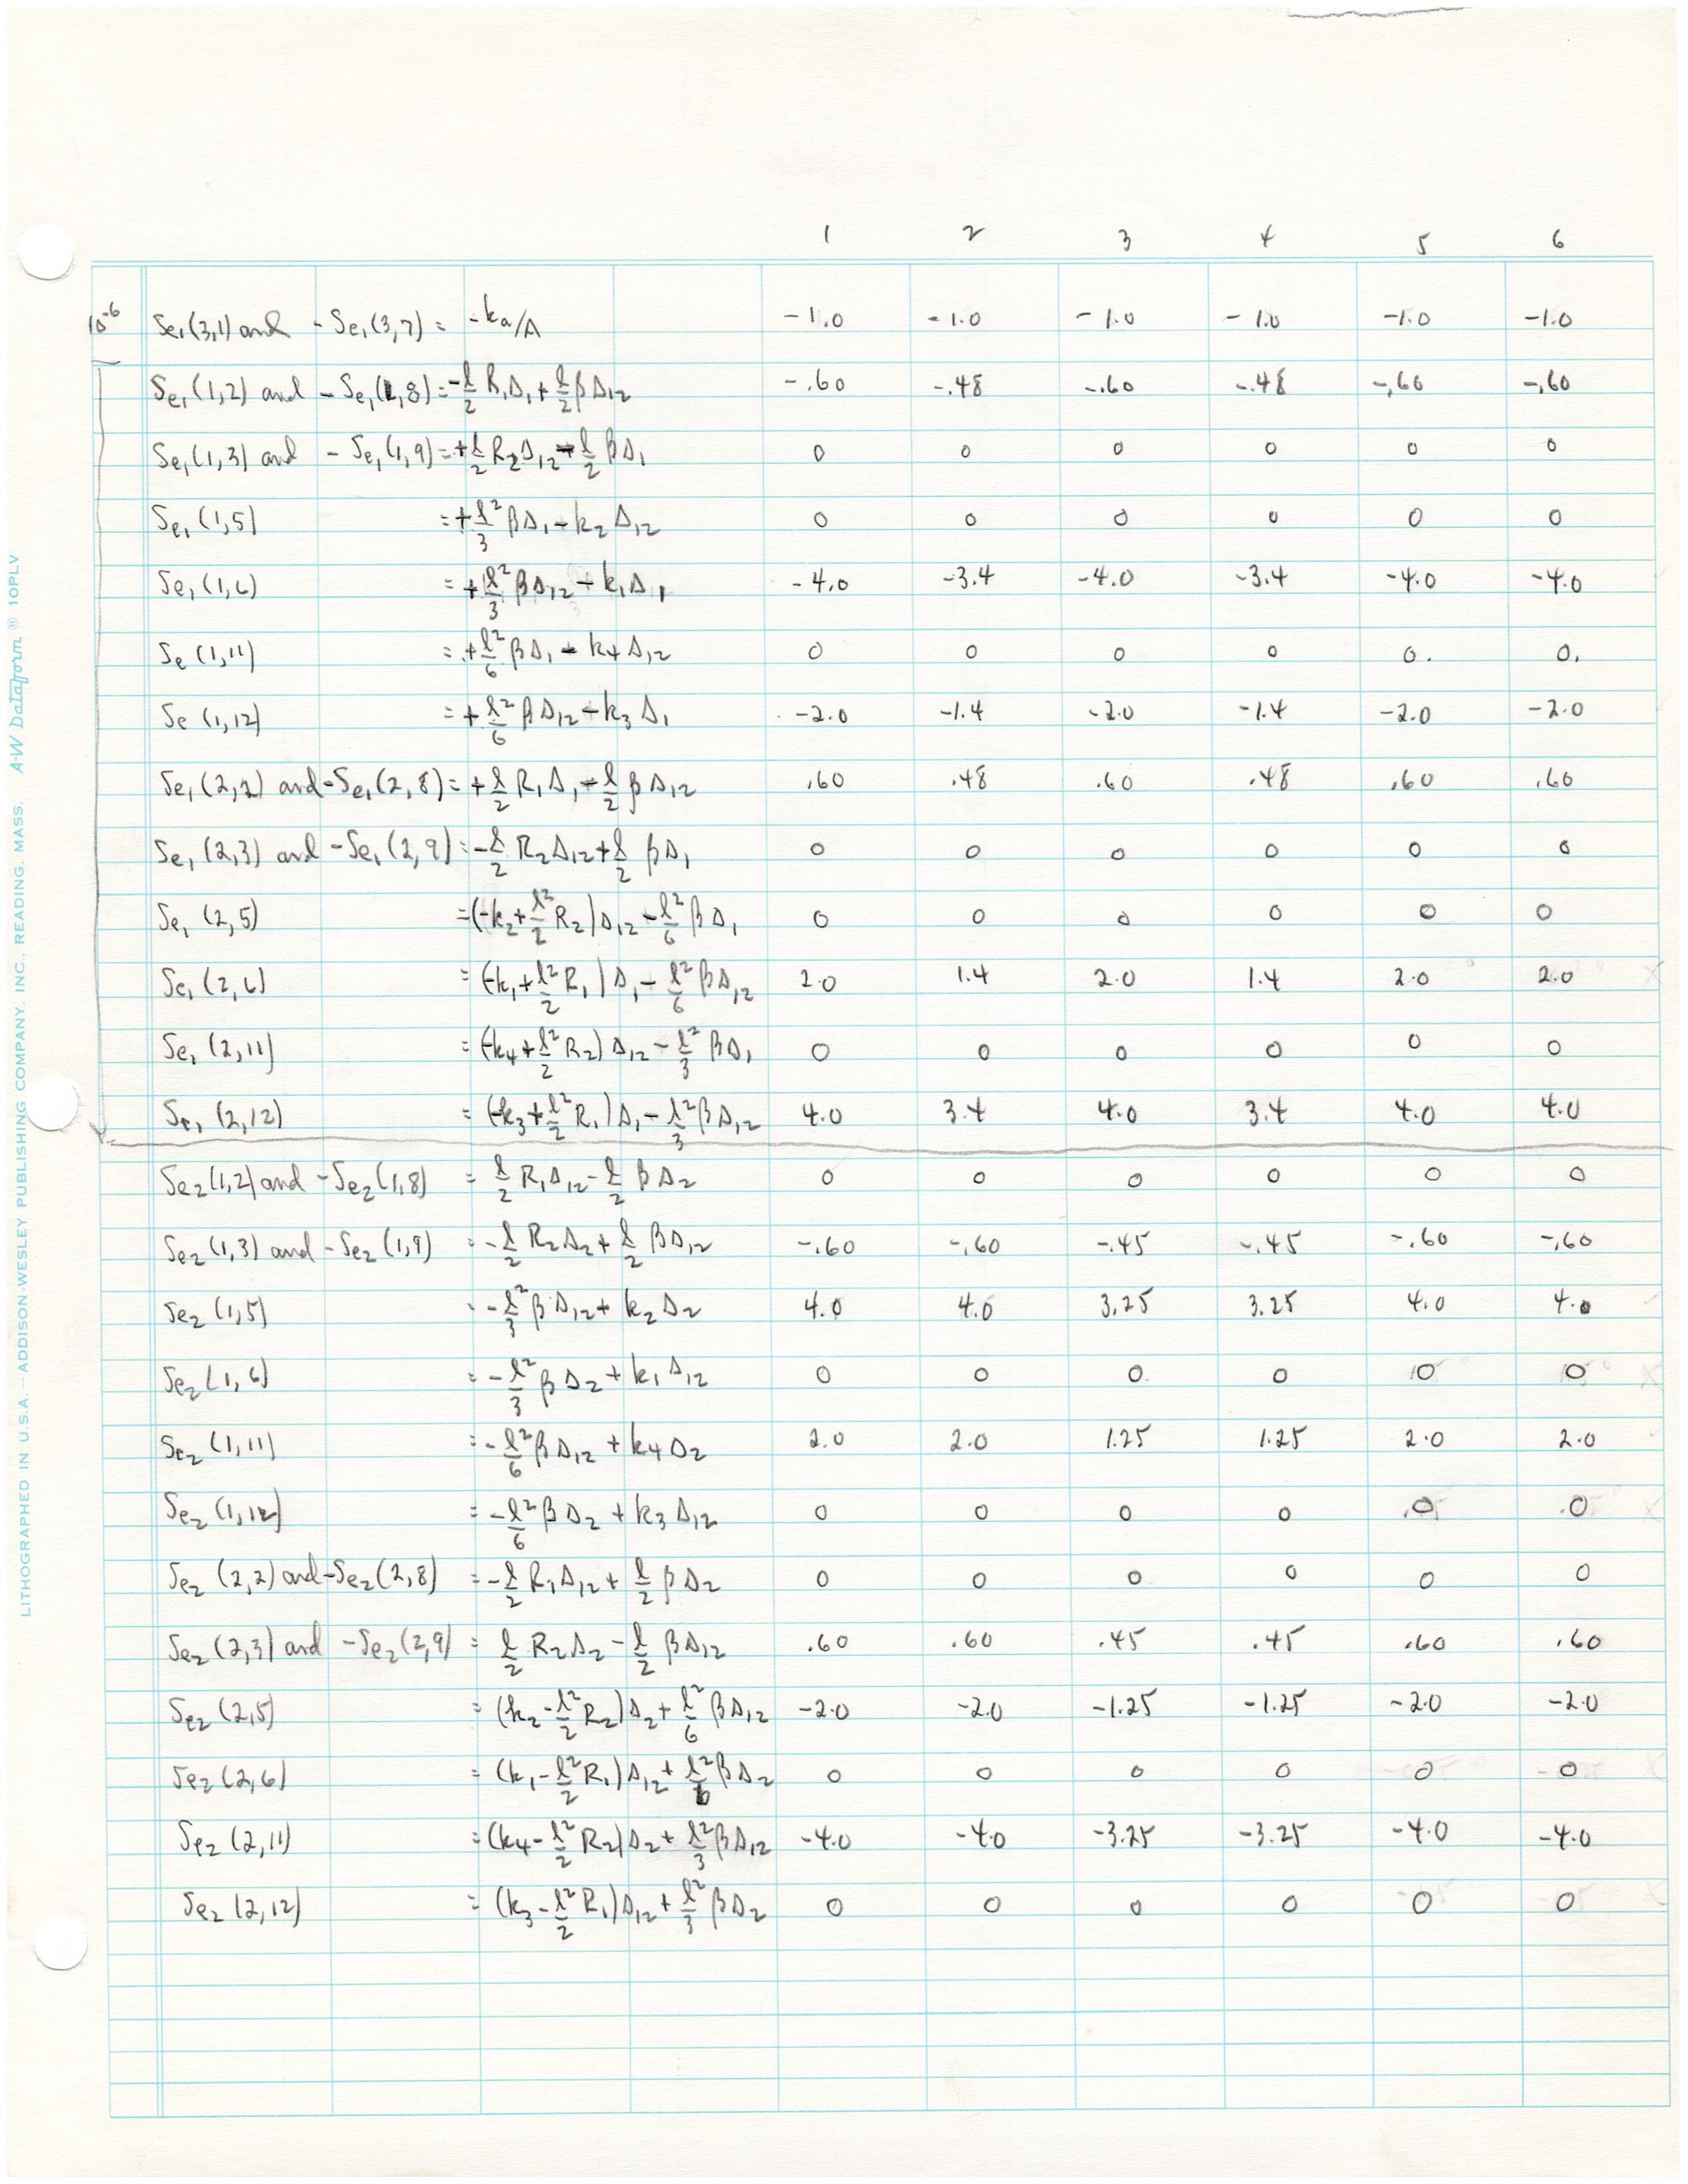 1 2 3 4 5 6
10⁻⁶ Se₁(3,1) and -Se₁(3,7) = -ka/A -1.0 -1.0 -1.0 -1.0 -1.0 -1.0
Se₁(1,2) and -Se₁(1,8) = -ℓ/2 R₁Δ₁ + ℓ/2 βΔ₁₂ -.60 -.48 -.60 -.48 -.60 -.60
Se₁(1,3) and -Se₁(1,9) = +ℓ/2 R₂Δ₁₂ - ℓ/2 βΔ₁ 0 0 0 0 0 0
Se₁(1,5) = +ℓ²/3 βΔ₁ - k₂Δ₁₂ 0 0 0 0 0 0
Se₁(1,6) = +ℓ²/3 βΔ₁₂ - k₁Δ₁ -4.0 -3.4 -4.0 -3.4 -4.0 -4.0
Se(1,11) = +ℓ²/6 βΔ₁ - k₄Δ₁₂ 0 0 0 0 0. 0.
Se(1,12) = +ℓ²/6 βΔ₁₂ - k₃Δ₁ -2.0 -1.4 -2.0 -1.4 -2.0 -2.0
Se₁(2,2) and -Se₁(2,8) = +ℓ/2 R₁Δ₁ - ℓ/2 βΔ₁₂ .60 .48 .60 .48 .60 .60
Se₁(2,3) and -Se₁(2,9) = -ℓ/2 R₂Δ₁₂ + ℓ/2 βΔ₁ 0 0 0 0 0 0
Se₁(2,5) = (-k₂ + ℓ²/2 R₂)Δ₁₂ - ℓ²/6 βΔ₁ 0 0 0 0 0 0
Se₁(2,6) = (-k₁ + ℓ²/2 R₁)Δ₁ - ℓ²/6 βΔ₁₂ 2.0 1.4 2.0 1.4 2.0 2.0
Se₁(2,11) = (-k₄ + ℓ²/2 R₂)Δ₁₂ - ℓ²/3 βΔ₁ 0 0 0 0 0 0
Se₁(2,12) = (-k₃ + ℓ²/2 R₁)Δ₁ - ℓ²/3 βΔ₁₂ 4.0 3.4 4.0 3.4 4.0 4.0
Se₂(1,2) and -Se₂(1,8) = ℓ/2 R₁Δ₁₂ - ℓ/2 βΔ₂ 0 0 0 0 0 0
Se₂(1,3) and -Se₂(1,9) = -ℓ/2 R₂Δ₂ + ℓ/2 βΔ₁₂ -.60 -.60 -.45 -.45 -.60 -.60
Se₂(1,5) = -ℓ²/3 βΔ₁₂ + k₂Δ₂ 4.0 4.0 3.25 3.25 4.0 4.0
Se₂(1,6) = -ℓ²/3 βΔ₂ + k₁Δ₁₂ 0 0 0 0 0 0
Se₂(1,11) = -ℓ²/6 βΔ₁₂ + k₄Δ₂ 2.0 2.0 1.25 1.25 2.0 2.0
Se₂(1,12) = -ℓ²/6 βΔ₂ + k₃Δ₁₂ 0 0 0 0 0 0
Se₂(2,2) and -Se₂(2,8) = -ℓ/2 R₁Δ₁₂ + ℓ/2 βΔ₂ 0 0 0 0 0 0
Se₂(2,3) and -Se₂(2,9) = ℓ/2 R₂Δ₂ - ℓ/2 βΔ₁₂ .60 .60 .45 .45 .60 .60
Se₂(2,5) = (k₂ - ℓ²/2 R₂)Δ₂ + ℓ²/6 βΔ₁₂ -2.0 -2.0 -1.25 -1.25 -2.0 -2.0
Se₂(2,6) = (k₁ - ℓ²/2 R₁)Δ₁₂ + ℓ²/6 βΔ₂ 0 0 0 0 0 0
Se₂(2,11) = (k₄ - ℓ²/2 R₂)Δ₂ + ℓ²/3 βΔ₁₂ -4.0 -4.0 -3.25 -3.25 -4.0 -4.0
Se₂(2,12) = (k₃ - ℓ²/2 R₁)Δ₁₂ + ℓ²/3 βΔ₂ 0 0 0 0 0 0
LITHOGRAPHED IN U.S.A. - ADDISON-WESLEY PUBLISHING COMPANY, INC., READING, MASS. A-W Dataform ® 10PLV